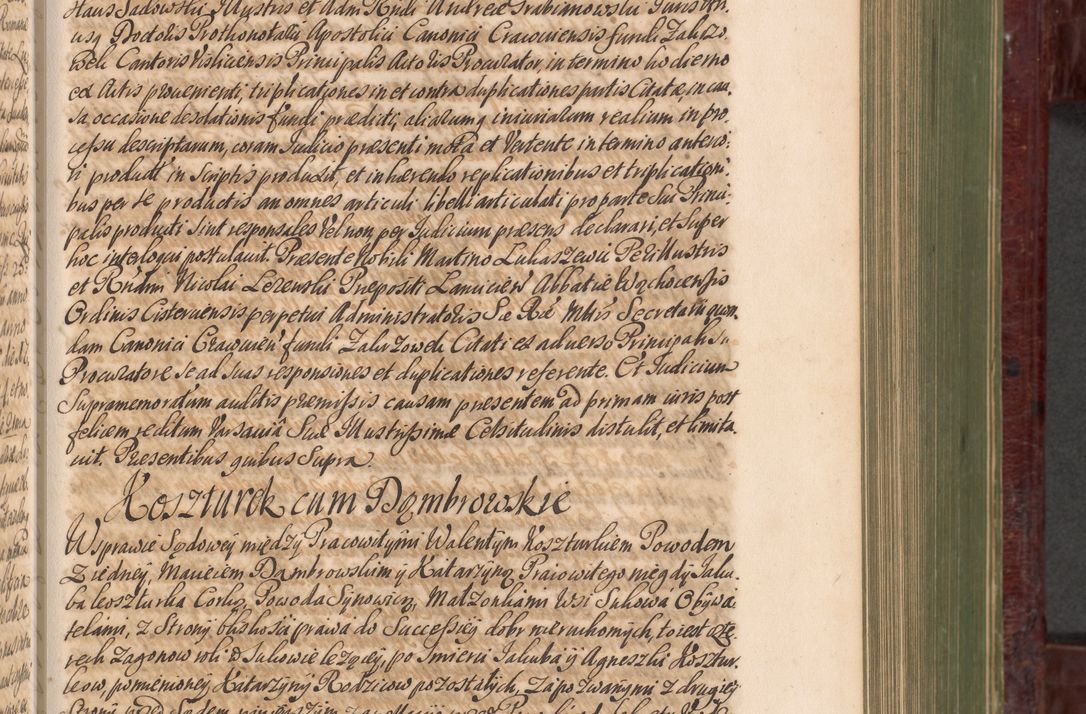 Hans Sadowski, Illustris et Adm Rndi Andreæ Grabianowski Juris utri
usq Doctoris Prothonotarii Apostolici Canonici Cracoviensis fundi Zaluzo
wek Cantoris Visliciensis Principalis Actoris Procurator, in termino hodierno
ex Actis proveniente, triplicationes in et contra duplicationes partis Citatæ, in cau
sa, occasione desolationis fundi prædicti, aliarumq iniuriarum realium in pro
cessu descriptarum, coram Judicio præsenti mota et Vertente in termino anterio
ri produxit in Scriptis produxit, et inhærendo replicationibus et triplication
bus per se productis an omnes articuli libelli articulati pro parte sui Princi
palis producti sint responsales Vel non per Judicium præsens declarari, et super
hoc interloqui postulavit. Præsente Nobili Martino Lukaszewic Perillustris
et Rndmi Nicolai Lezenski Præpositi Lanicien Abbatiæ Wąchocensis
Ordinis Cisterciensis perpetui Administratoris Sæ Ræ Mtis Secretarii quon
dam Canonici Cracovien fundi Zaluzowek Citati ex adverso Principalis
Procuratore se ad suas responsiones et duplicationes referente. Et Judicium
Supramemoratum auditis præmissis causam præsentem ad primam iuris post
felicem reditum Varsaviâ Suæ Illustrissimæ Celsitudinis distulit, et limita
vit. Præsentibus quibus Supra.
Koszturek cum Dąmbrowskie
W sprawie Sądowey między Pracowitymi Walentym Koszturkiem Powodem
z iedney, Maciejem Dąmbrowskim y Katarzyną Pracowitego niegdy Jaku
ba Koszturka Corką, Powoda Synowicą, Małżonkami Wsi Sukowa Obywa
telami, z Strony bliskości prawa do Successiey dobr nieruchomych, to iest czte
rech Zagonow roli w Sukowie leżącey, po Smierci Jakuba y Agneszki Kosztur
kow, pomienioney Katarzyny Rodzicow pozostałych, Zapozwanymi z drugiey